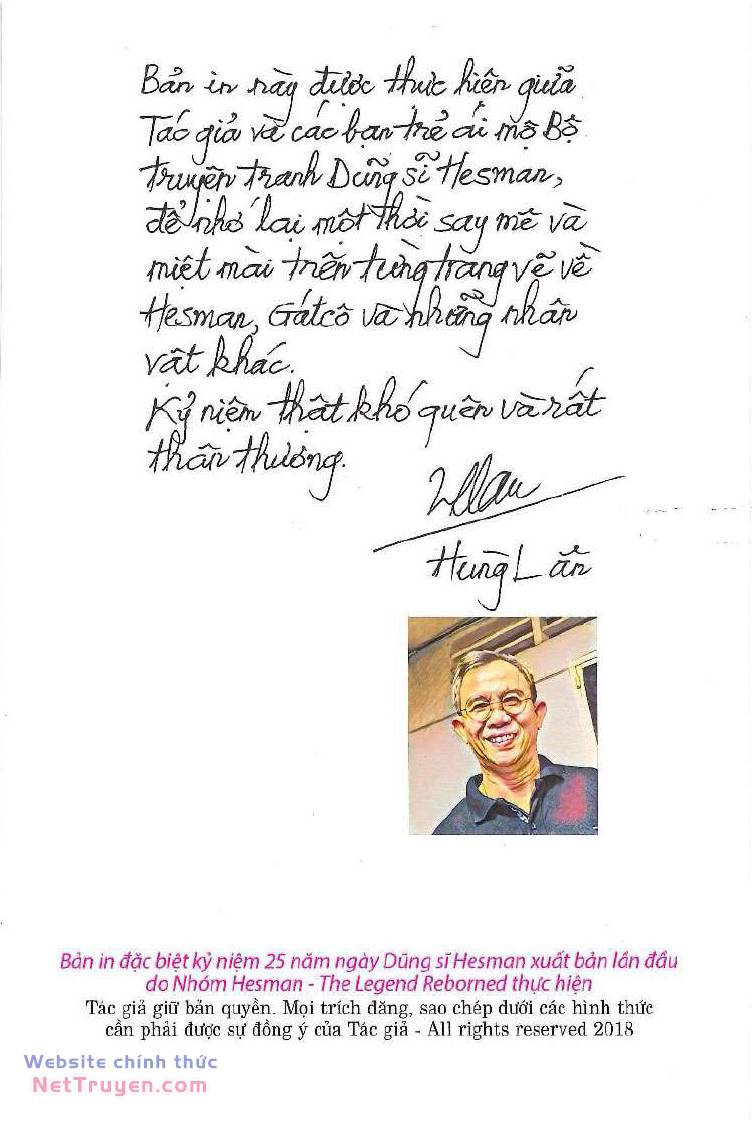 Bản in này được thực hiện giữa
Tác giả và các bạn trẻ ái mộ Bộ
truyện tranh Dũng sĩ Hesman,
để nhớ lại một thời say mê và
miệt mài trên từng trang vẽ về
Hesman, Gátcô và những nhân
vật khác.
Kỷ niệm thật khó quên và rất
thân thương.
Hùng Lân
Bản in đặc biệt kỷ niệm 25 năm ngày Dũng sĩ Hesman xuất bản lần đầu
do Nhóm Hesman - The Legend Reborned thực hiện
Tác giả giữ bản quyền. Mọi trích đăng, sao chép dưới các hình thức
cần phải được sự đồng ý của Tác giả - All rights reserved 2018
Website chính thức
NetTruyen.com